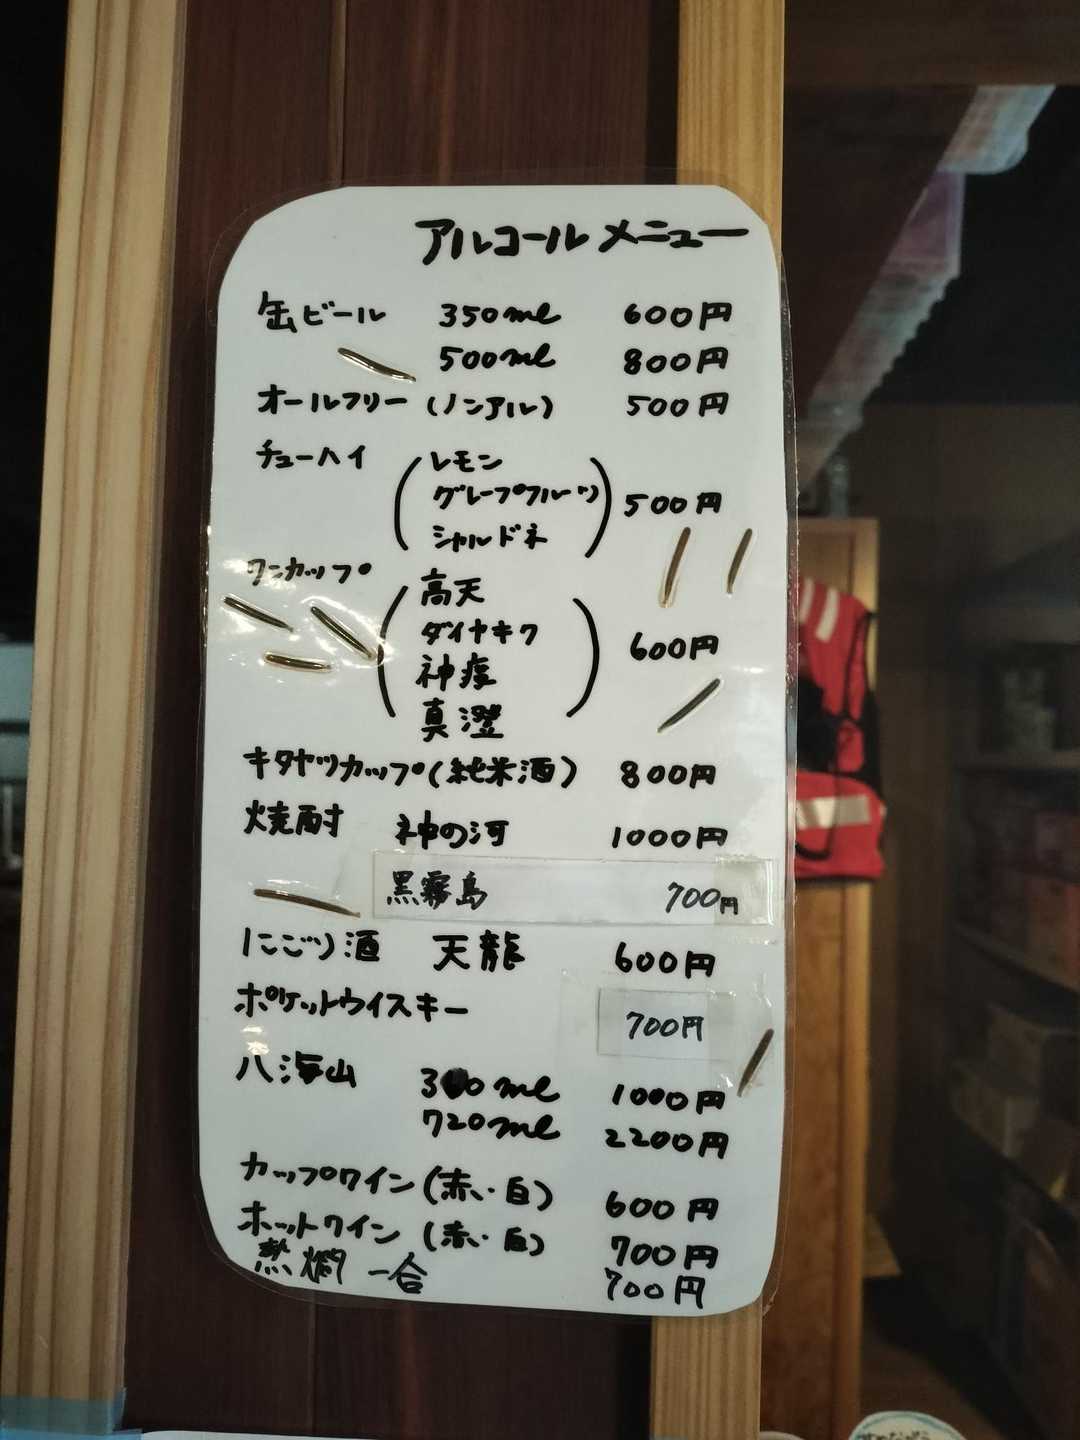 アルコールメニュー
缶ビール 350ml 600円
500ml 800円
オールフリー (ノンアル) 500円
チューハイ (レモン
グレープフルーツ
シャルドネ) 500円
ワンカップ (高天
ダイヤキク
神渡
真澄) 600円
キタヤツカップ (純米酒) 800円
焼酎 神の河 1000円
黒霧島 700円
にごり酒 天龍 600円
ポケットウイスキー 700円
八海山 300ml 1000円
720ml 2200円
カップワイン (赤・白) 600円
ホットワイン (赤・白) 700円
熱燗 一合 700円